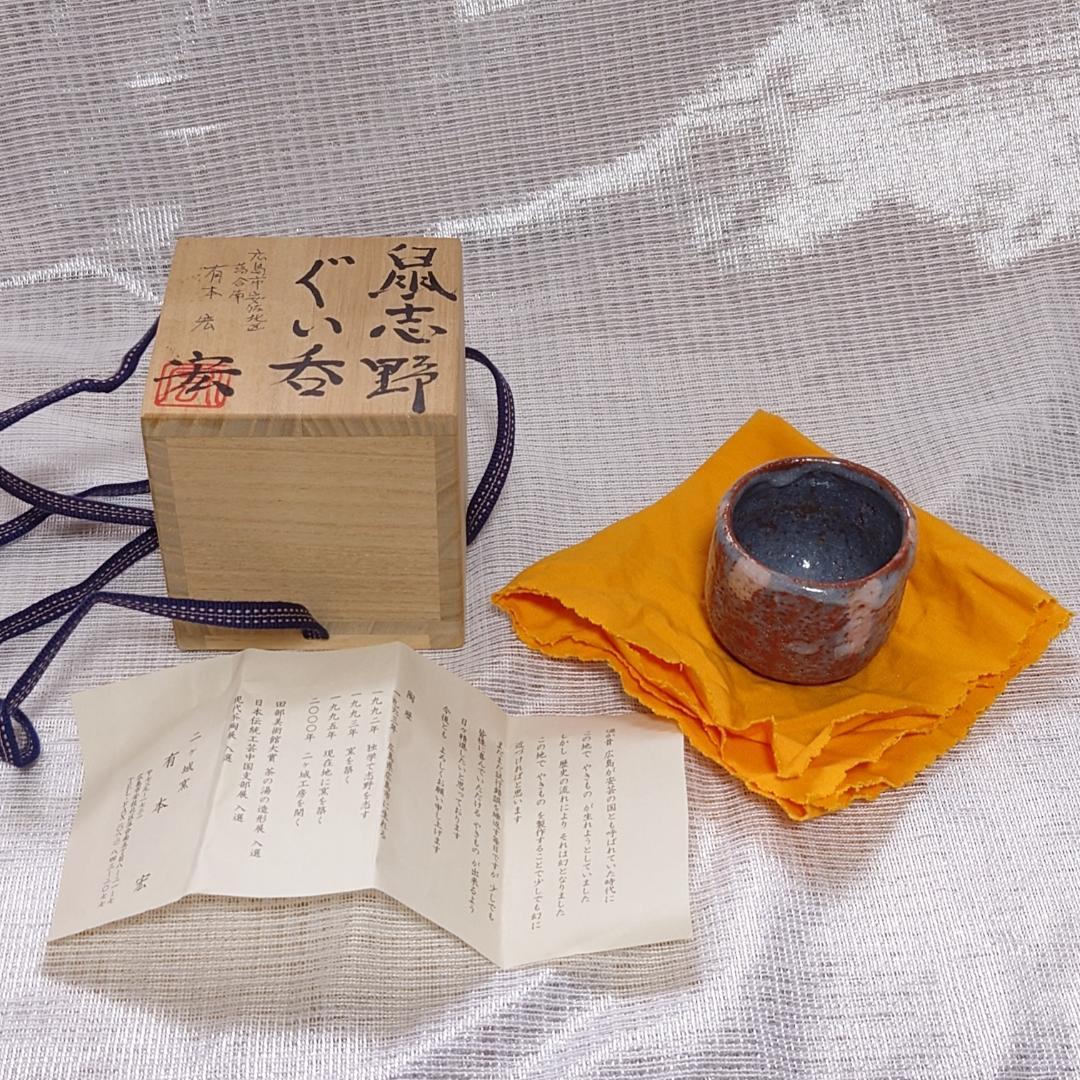 鼠志野
ぐい呑
宏
広島市安佐北区
落合南
有本 宏
その昔 広島が安芸の国とも呼ばれていた時代に
この地で やきもの が生れようとしていました
しかし 歴史の流れにより それは幻となりました
この地で やきもの を製作することで少しでも幻に
近づければと思います
まだまだ試行錯誤を繰返す毎日ですが 少しでも
皆様に喜んでいただける やきもの が出来るよう
日々精進したいと思っております
今後とも よろしくお願い申し上げます
陶歴
一九九二年 独学で志野を志す
一九九三年 窯を築く
一九九五年 現在地に窯を築く
二〇〇〇年 二ヶ城工房を開く
田部美術館大賞 茶の湯の造形展 入選
日本伝統工芸中国支部展 入選
現代茶陶展 入選
二ヶ城窯
有本 宏